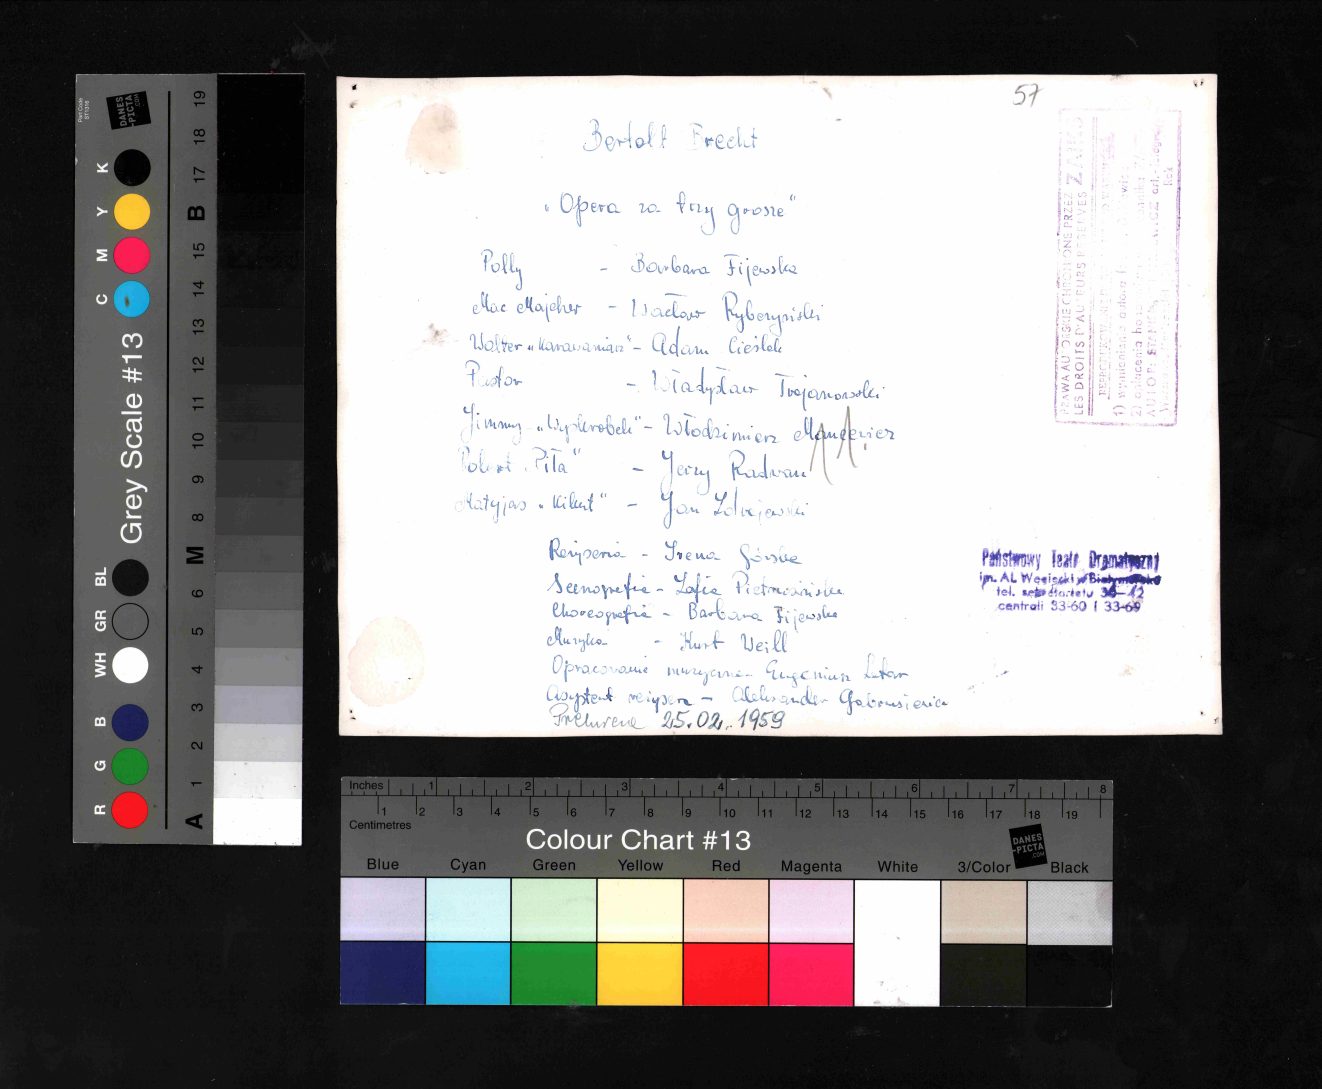 57
Bertolt Brecht
„Opera za trzy grosze"
Polly - Barbara Fijewska
Mac Majcher - Wacław Rybczyński
Walter „Karawaniarz" - Adam Cieślak
Pastor - Władysław Trojanowski
Jimmy „Wyskrobek" - Włodzimierz Mancewicz
Robert „Piła" - Jerzy Radwan
Matyjas „Kikut" - Jan Zdrojewski
Reżyseria - Irena Górska
Scenografia - Zofia Pietrusińska
Choreografia - Barbara Fijewska
Muzyka - Kurt Weill
Opracowanie muzyczne Eugeniusz
Asystent reżysera - Aleksander Gabrusiewicz
25.02.1959
PRAWA AUTORSKIE CHRONIONE PRZEZ ZAIKS
LES DROITS D'AUTEURS RESERVES
1) wymienienia autora
2)
AUTOR:
Państwowy Teatr Dramatyczny
im. Al. Węgierki w Białymstoku
tel. sekretariatu 36-42
centrali 33-60 i 33-69
Part Code
DANES
-PICTA
.COM
Grey Scale #13
K Y M C
BL GR WH
B G R
19 18 17 B 15 14 13 12 11 10 9 8 M 6 5 4 3 2 1 A
Inches 1 2 3 4 5 6 7 8
1 2 3 4 5 6 7 8 9 10 11 12 13 14 15 16 17 18 19
Centimetres
Colour Chart #13
DANES
-PICTA
.COM
Blue Cyan Green Yellow Red Magenta White 3/Color Black